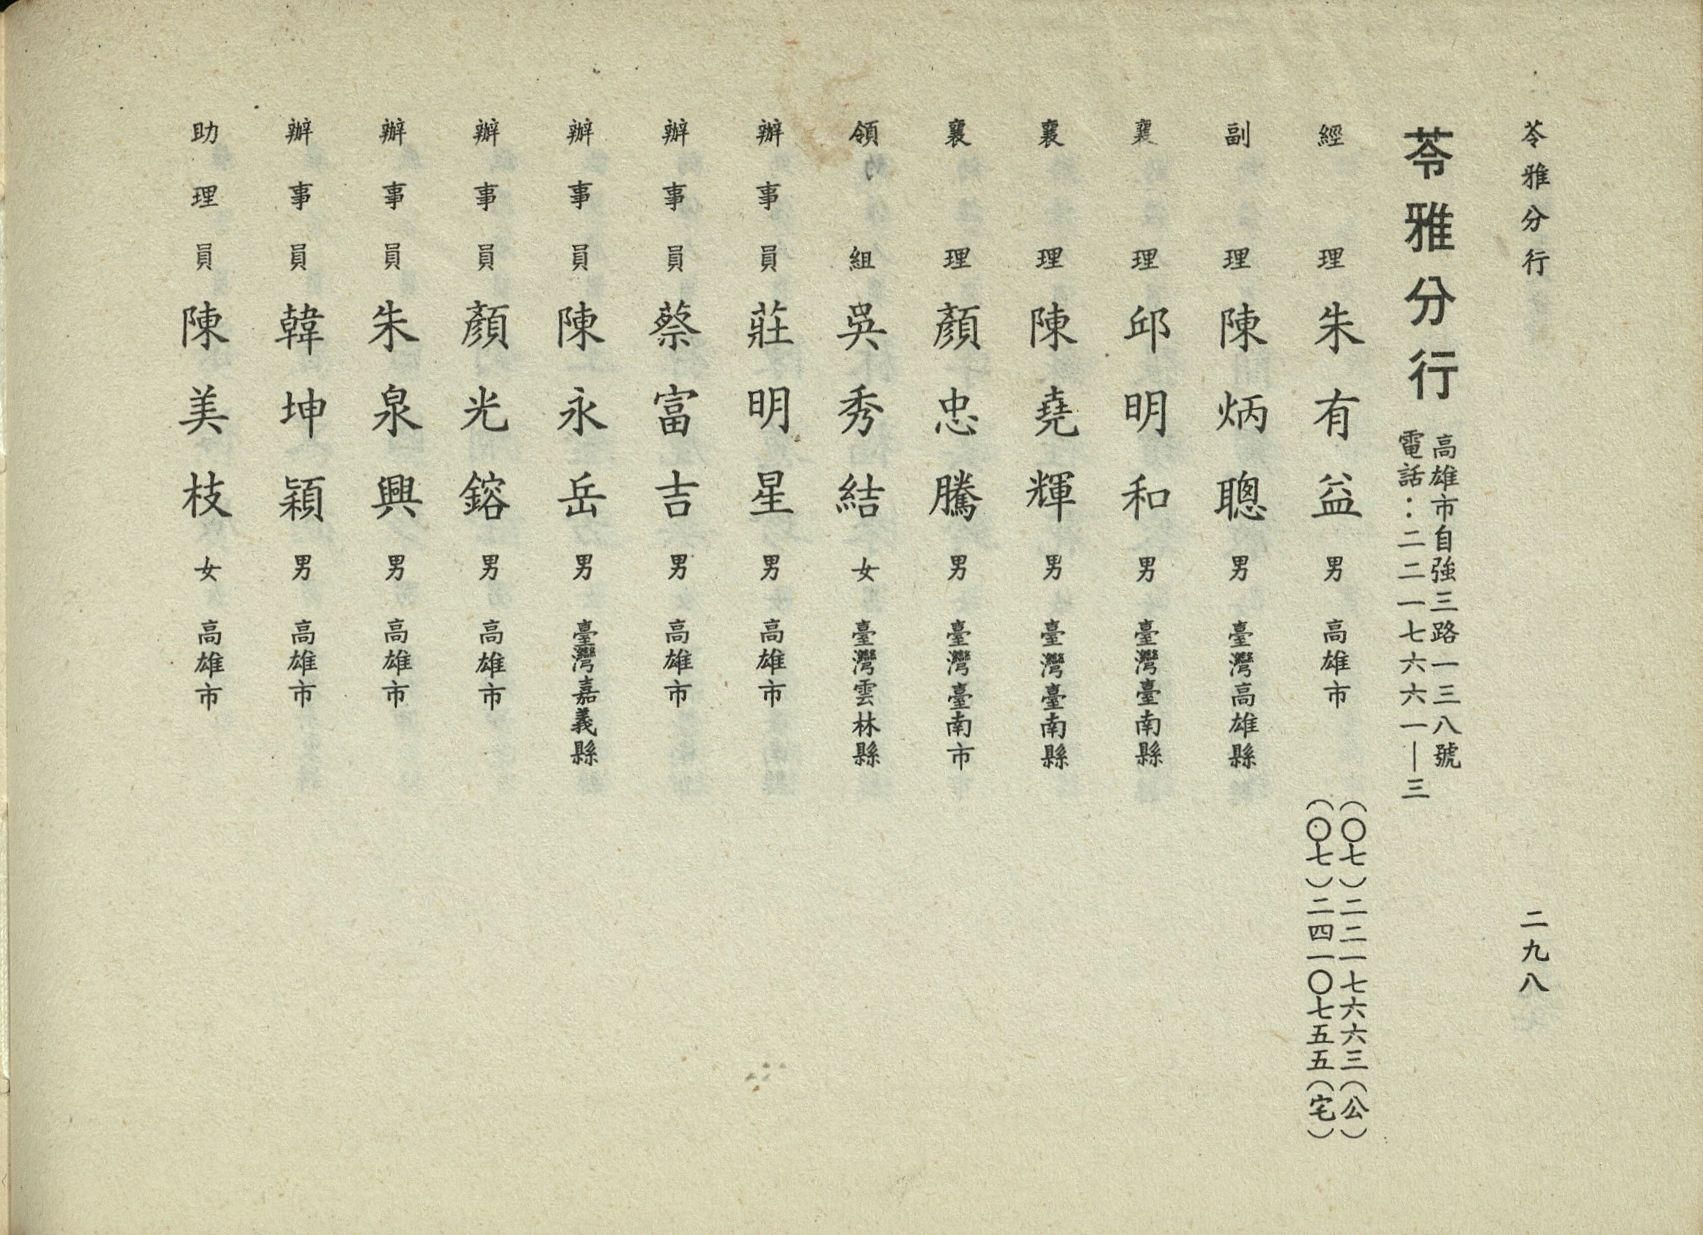 苓雅分行
二九八
苓雅分行
高雄市自強三路一三八號
電話：二二一七六六一—三
經理 朱有益 男 高雄市
（〇七）二二一七六六三（公）
（〇七）二四一〇七五五（宅）
副理 陳炳聰 男 臺灣高雄縣
襄理 邱明和 男 臺灣臺南縣
襄理 陳堯輝 男 臺灣臺南縣
襄理 顏忠騰 男 臺灣臺南市
領組 吳秀結 女 臺灣雲林縣
辦事員 莊明星 男 高雄市
辦事員 蔡富吉 男 高雄市
辦事員 陳永岳 男 臺灣嘉義縣
辦事員 顏光鎔 男 高雄市
辦事員 朱泉興 男 高雄市
辦事員 韓坤穎 男 高雄市
助理員 陳美枝 女 高雄市